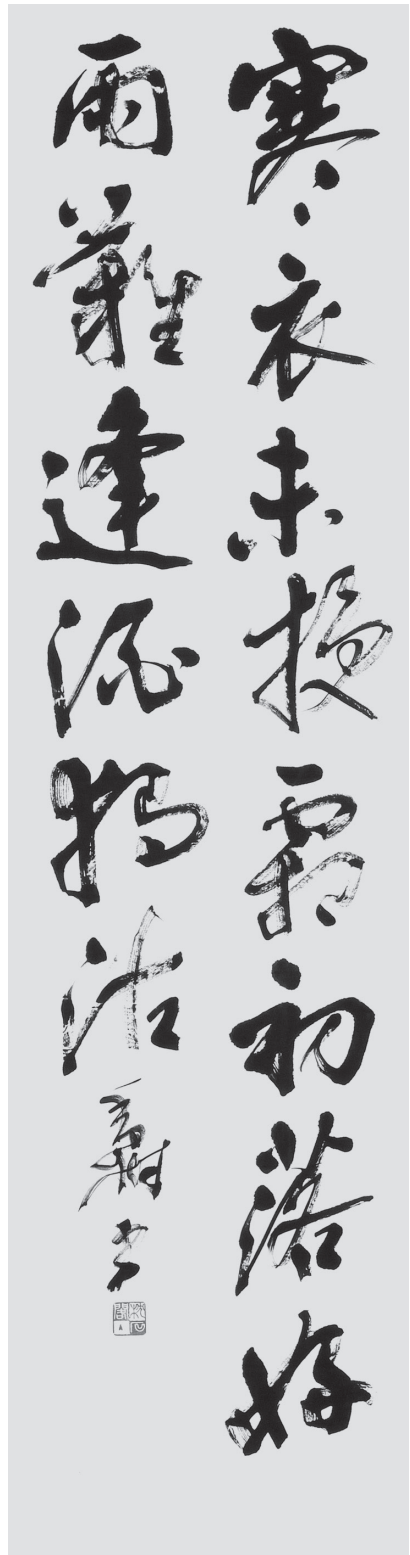 寒衣未授霜初落好
雨難逢酒獨沽